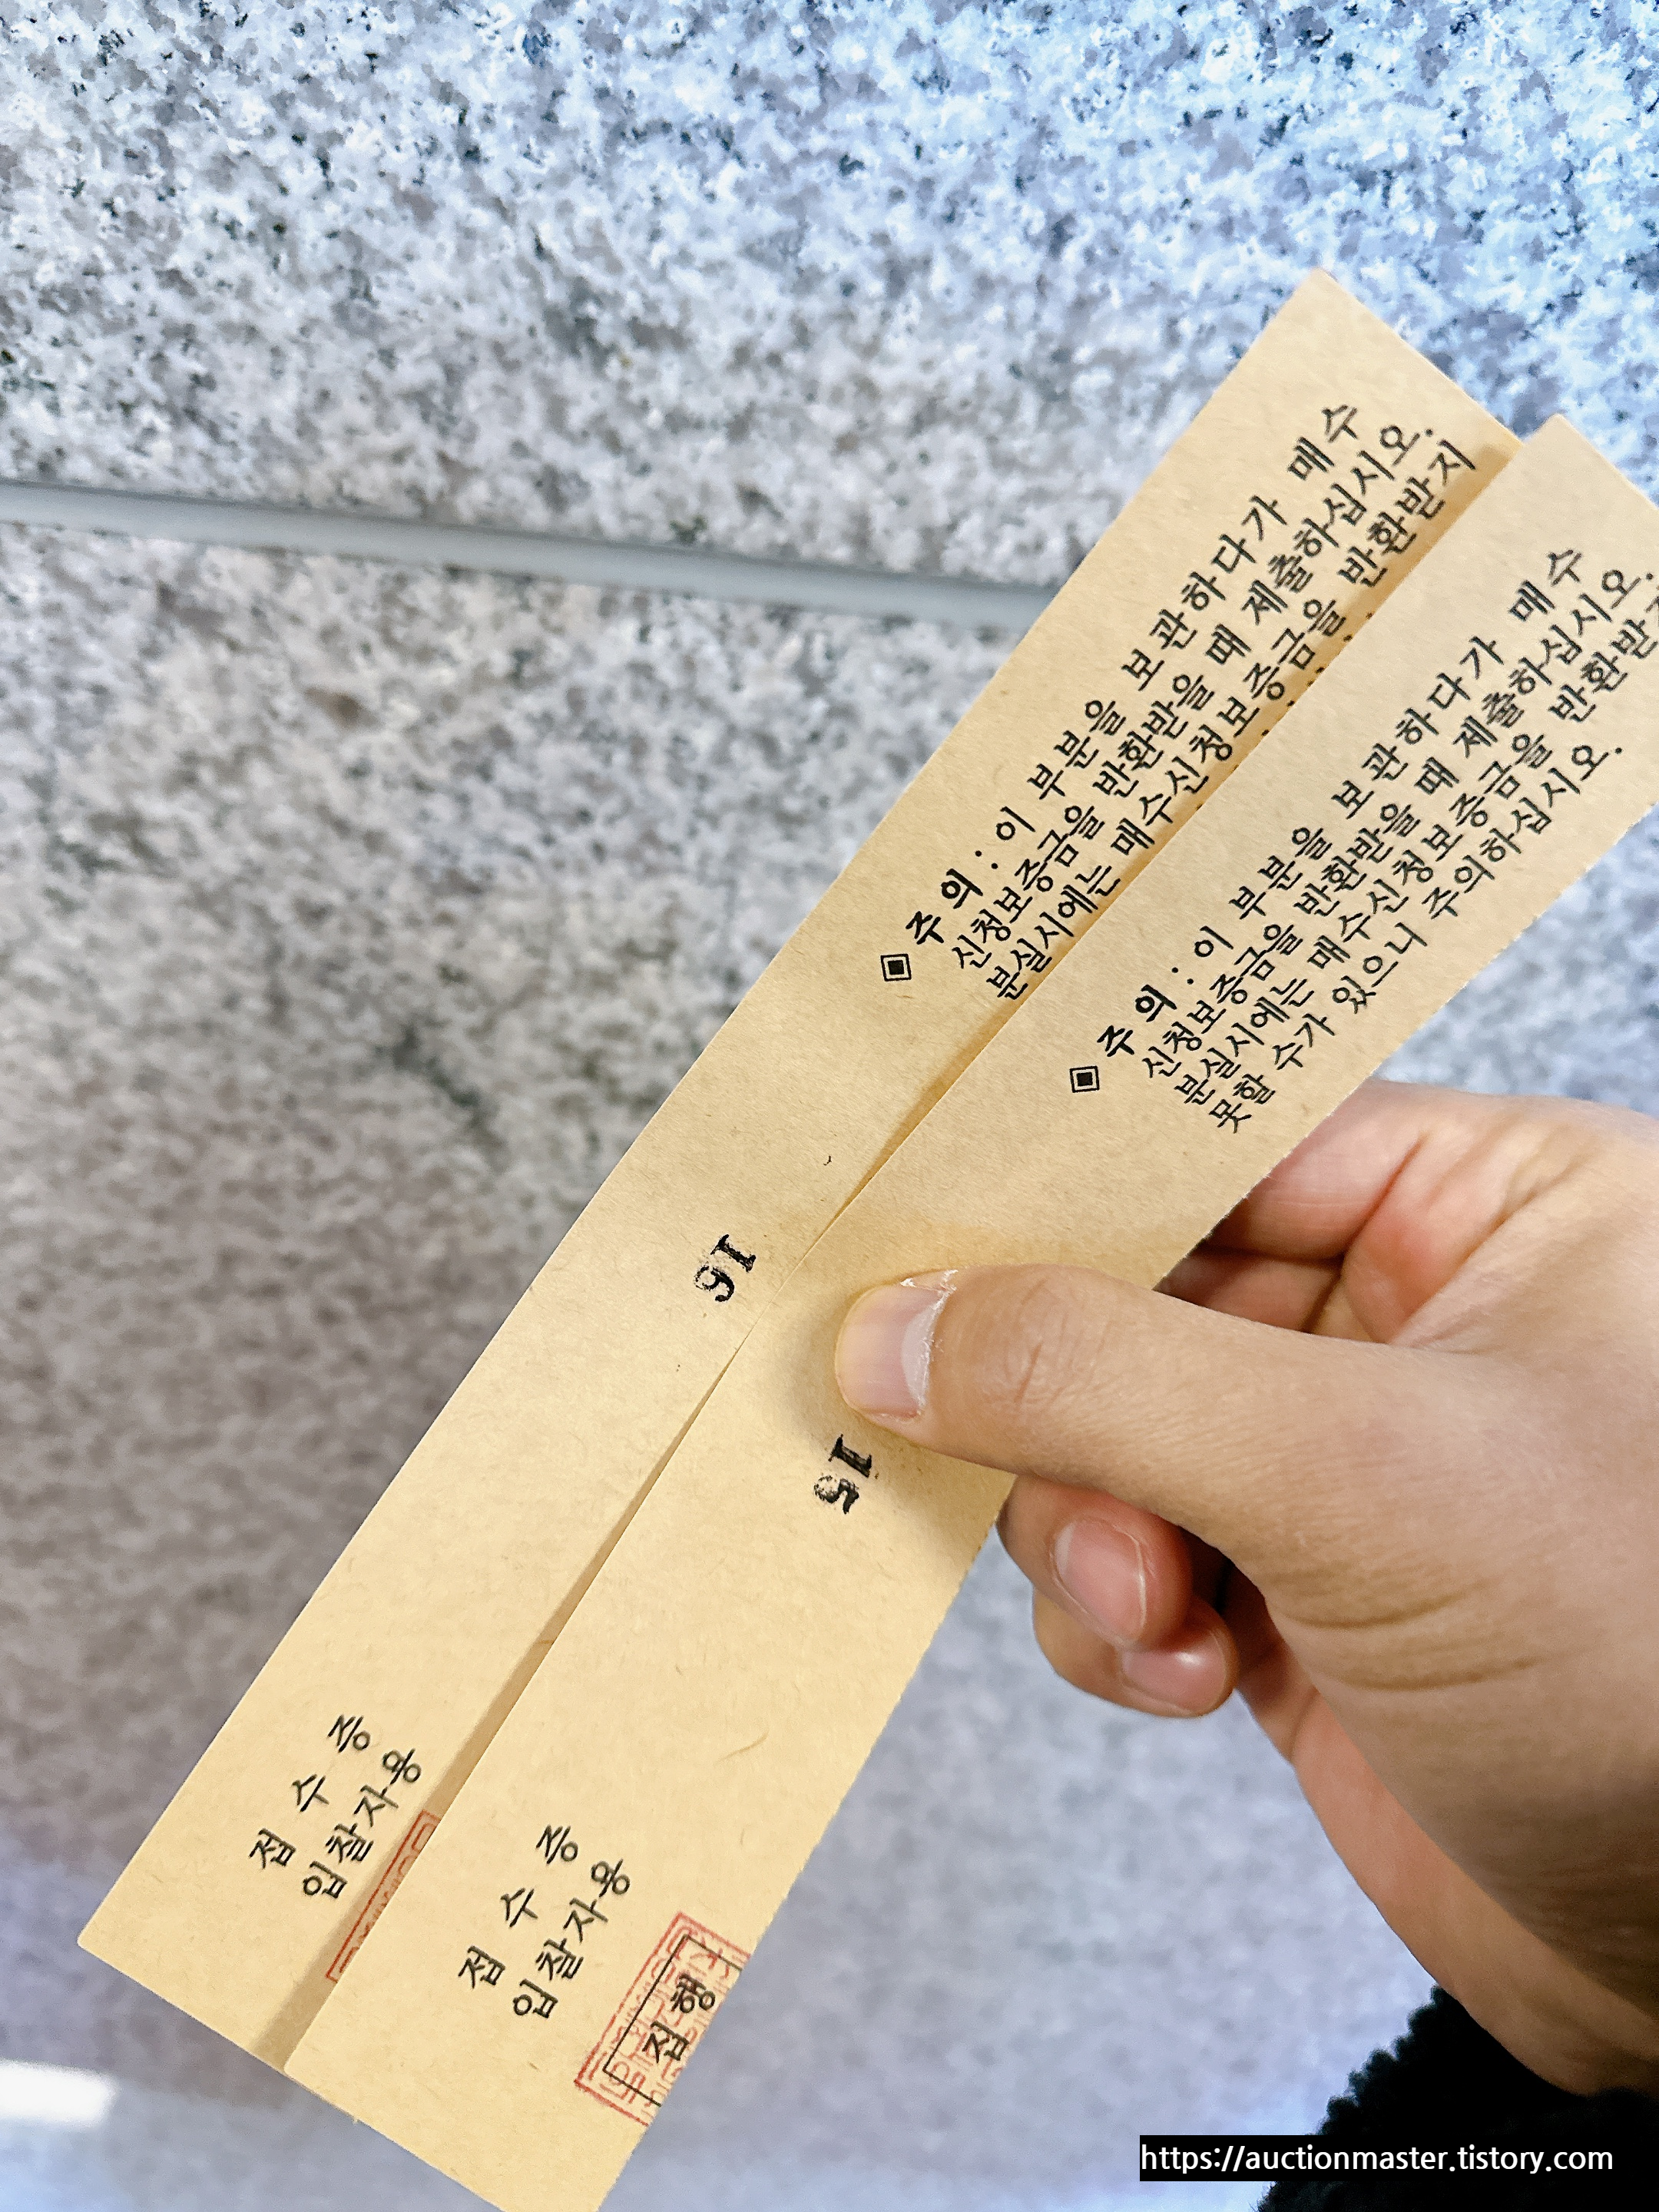 접 수 증
입찰자용
16
▣ 주 의 : 이 부분을 보관하다가 매수
신청보증금을 반환받을 때 제출하십시오.
분실시에는 매수신청보증금을 반환받지
접 수 증
입찰자용
집행
15
▣ 주 의 : 이 부분을 보관하다가 매수
신청보증금을 반환받을 때 제출하십시오.
분실시에는 매수신청보증금을 반환받지
못할 수가 있으니 주의하십시오.
https://auctionmaster.tistory.com